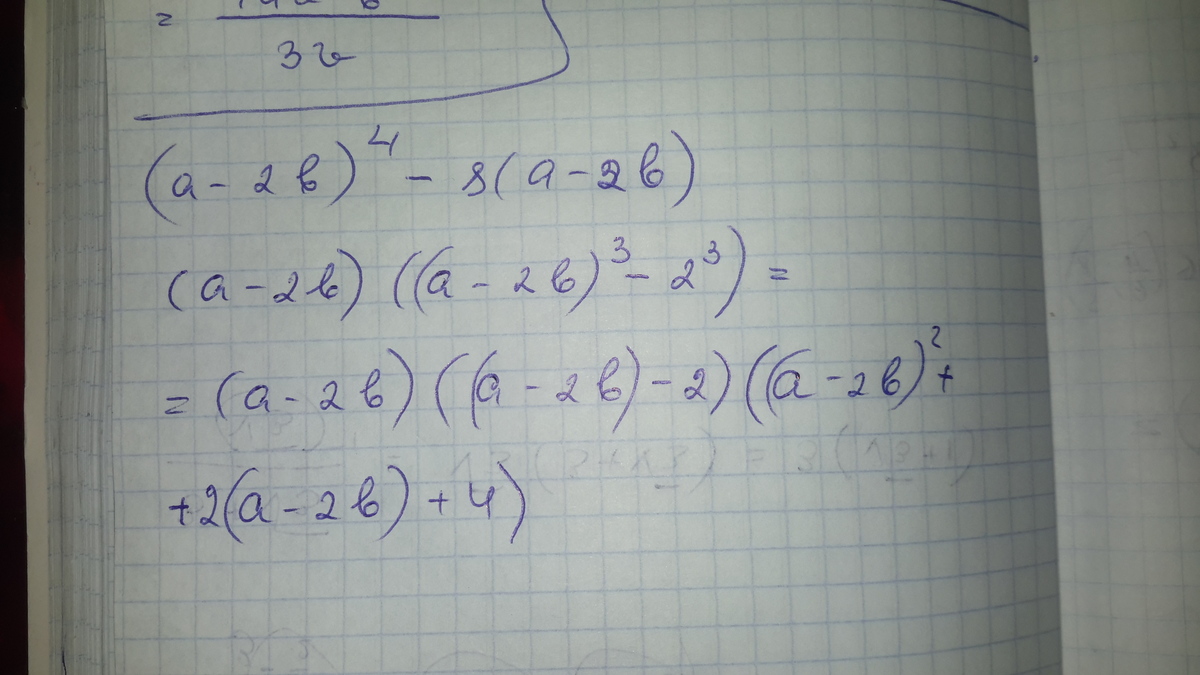 =
3
(a - 2b)⁴ - 8(a - 2b)
(a - 2b) ((a - 2b)³ - 2³) =
= (a - 2b) ((a - 2b) - 2) ((a - 2b)² +
+ 2(a - 2b) + 4)